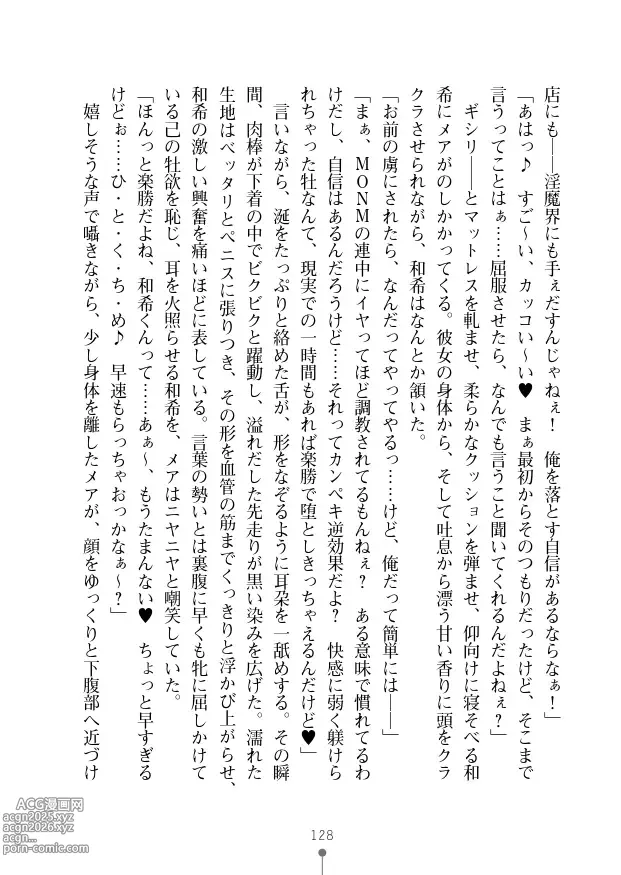 店にも――淫魔界にも手ぇだすんじゃねぇ！　俺を落とす自信があるならなぁ！」
「あはっ♪　すご～い、カッコい～い♥　まぁ最初からそのつもりだったけど、そこまで
言うってことはぁ……屈服させたら、なんでも言うこと聞いてくれるんだよねぇ？」
　ギシリ――とマットレスを軋ませ、柔らかなクッションを弾ませ、仰向けに寝そべる和
希にメアがのしかかってくる。彼女の身体から、そして吐息から漂う甘い香りに頭をクラ
クラさせられながら、和希はなんとか頷いた。
「お前の虜にされたら、なんだってやってやるっ……けど、俺だって簡単には――」
「まぁ、ＭＯＮＭの連中にイヤってほど調教されてるもんねぇ？　ある意味で慣れてるわ
けだし、自信はあるんだろうけど……それってカンペキ逆効果だよ？　快感に弱く躾けら
れちゃった牡なんて、現実での一時間もあれば楽勝で堕としきっちゃえるんだけど♥」
　言いながら、涎をたっぷりと絡めた舌が、形をなぞるように耳朶を一舐めする。その瞬
間、肉棒が下着の中でビクビクと躍動し、溢れだした先走りが黒い染みを広げた。濡れた
生地はベッタリとペニスに張りつき、その形を血管の筋までくっきりと浮かび上がらせ、
和希の激しい興奮を痛いほどに表している。言葉の勢いとは裏腹に早くも牝に屈しかけて
いる己の牡欲を恥じ、耳を火照らせる和希を、メアはニヤニヤと嘲笑していた。
「ほんっと楽勝だよね、和希くんって……あぁ～、もうたまんない♥　ちょっと早すぎる
けどぉ……ひ・と・く・ち・め♪　早速もらっちゃおっかなぁ～？」
　嬉しそうな声で囁きながら、少し身体を離したメアが、顔をゆっくりと下腹部へ近づけ
128
ACG漫画网
acgn2025.xyz
acgn2026.xyz
acgn...
porn-comic.com